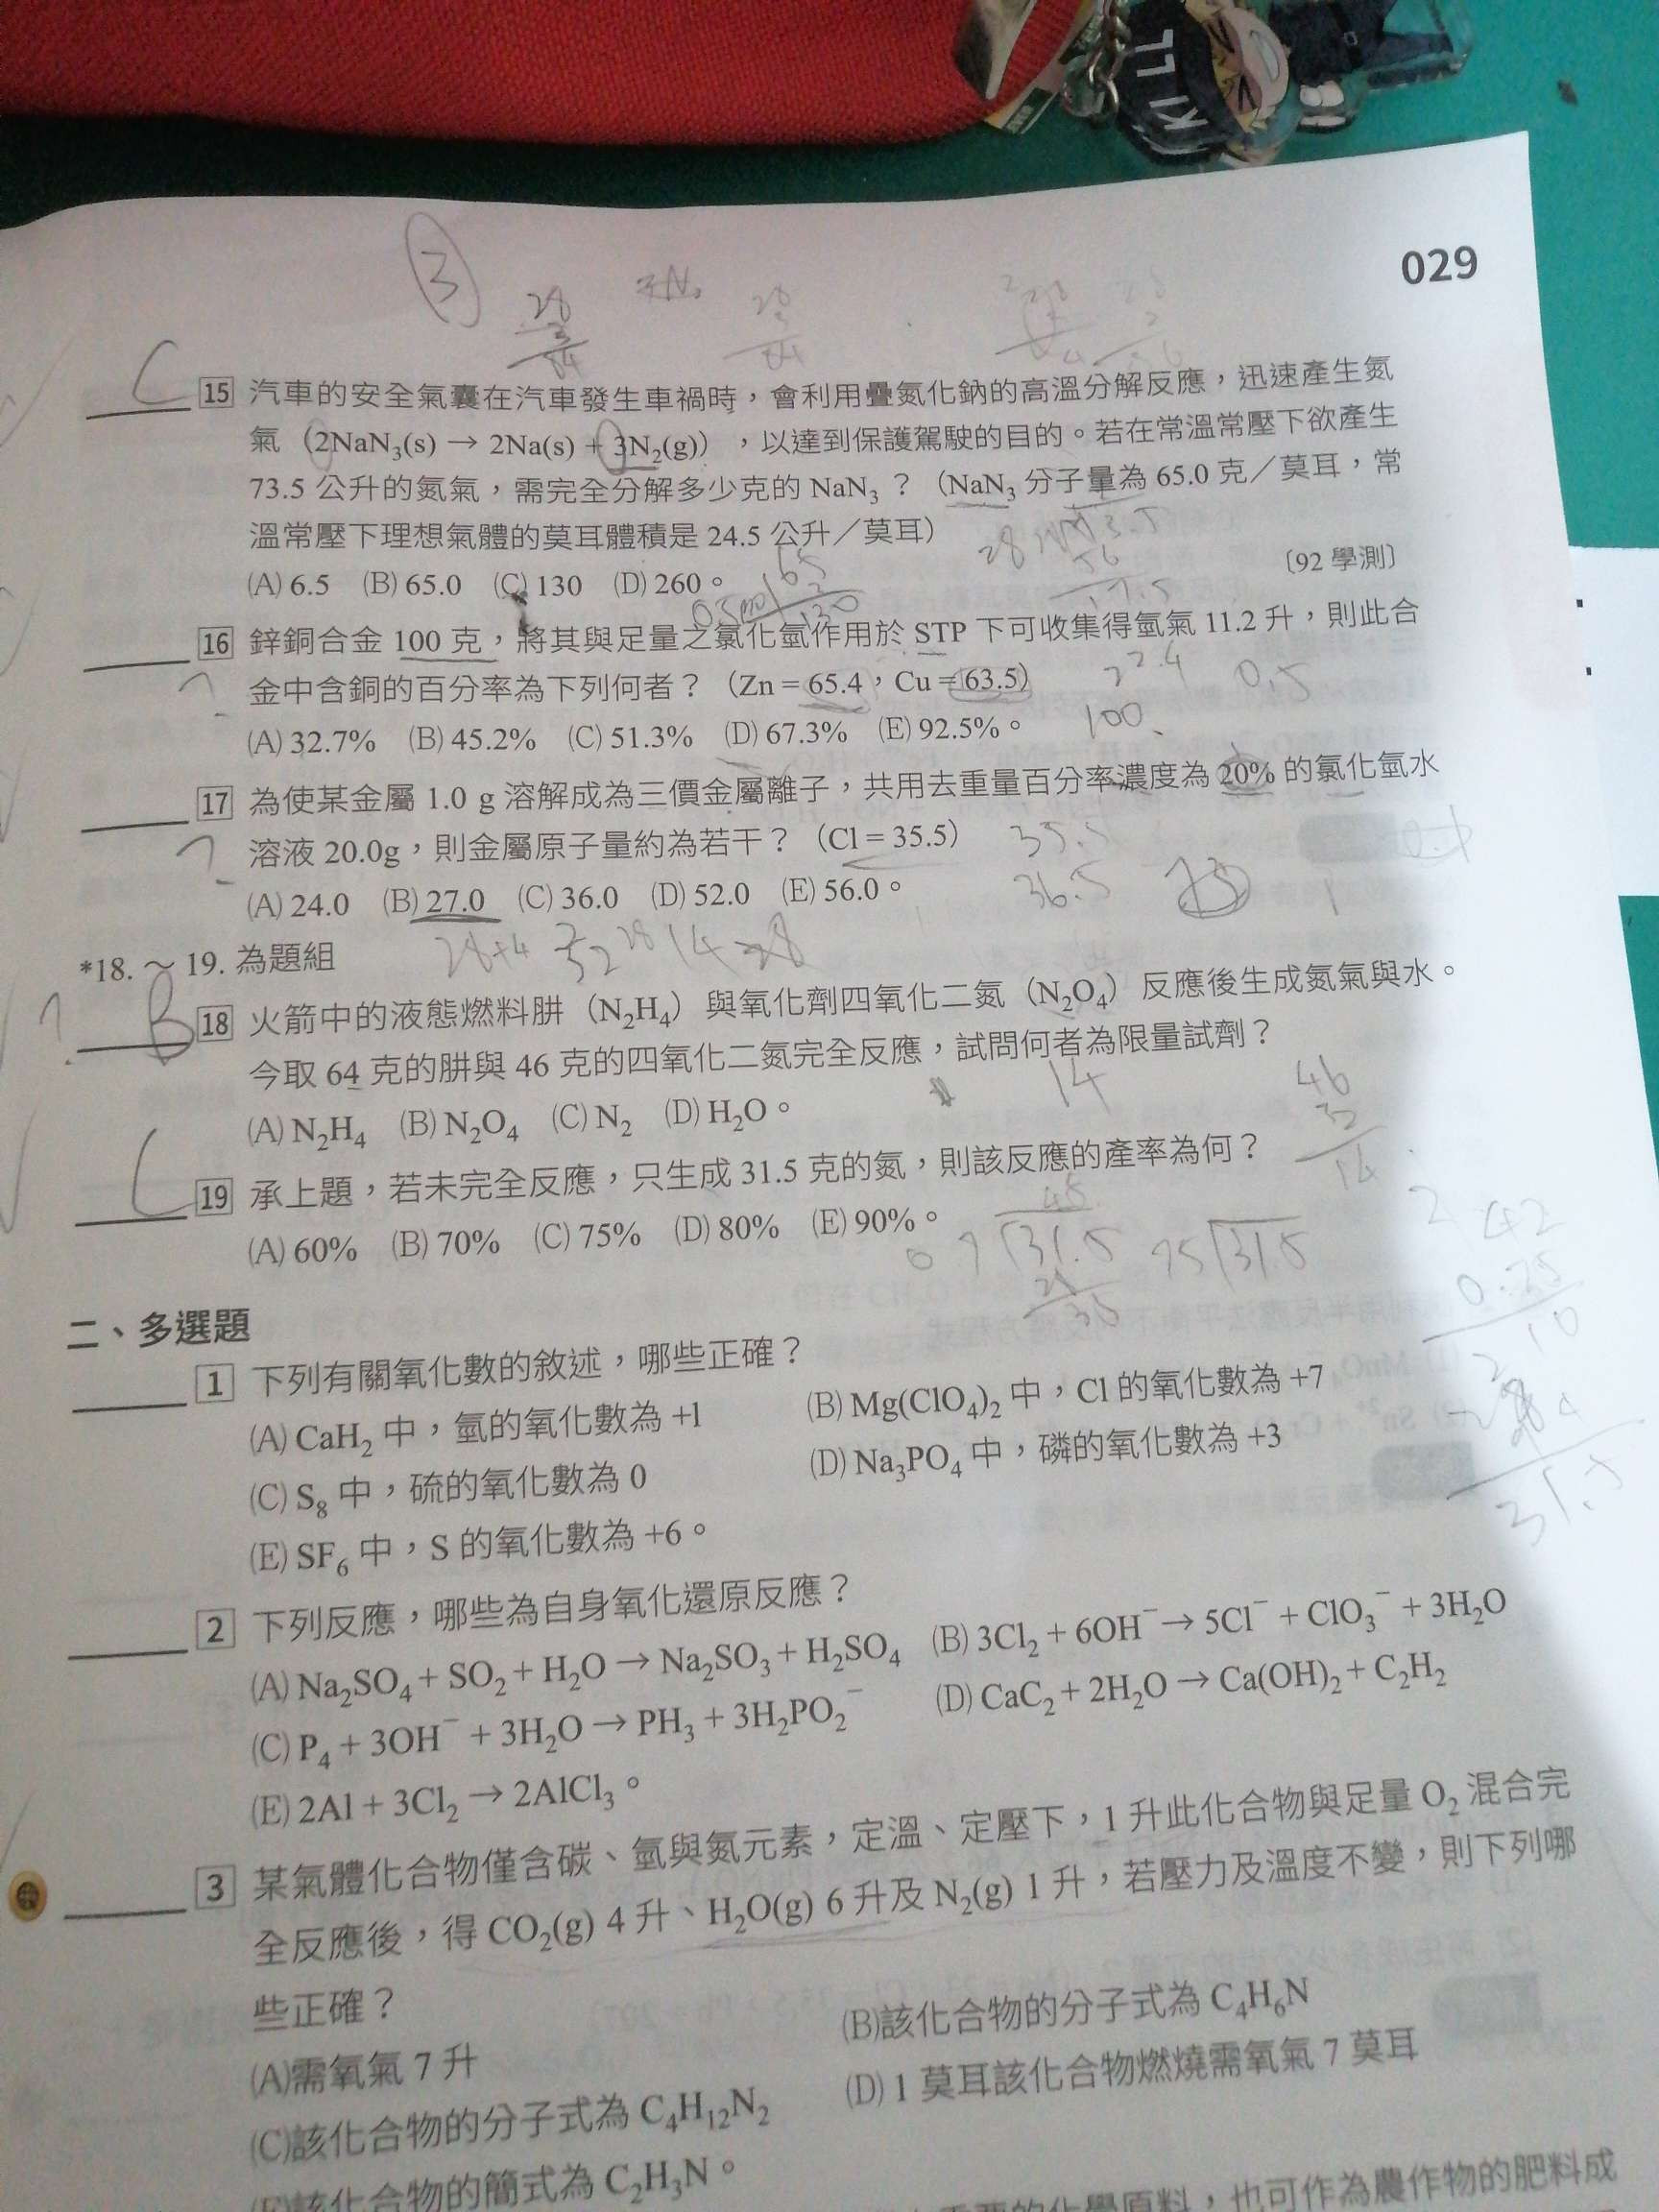 KILL
029
3
28
3
84
C
15 汽車的安全氣囊在汽車發生車禍時，會利用疊氮化鈉的高溫分解反應，迅速產生氮
氣（2NaN₃(s) → 2Na(s) + 3N₂(g)），以達到保護駕駛的目的。若在常溫常壓下欲產生
73.5 公升的氮氣，需完全分解多少克的 NaN₃ ？（NaN₃ 分子量為 65.0 克／莫耳，常
溫常壓下理想氣體的莫耳體積是 24.5 公升／莫耳）
(A) 6.5 (B) 65.0 (C) 130 (D) 260。 〔92 學測〕
65
2
130
16 鋅銅合金 100 克，將其與足量之氯化氫作用於 STP 下可收集得氫氣 11.2 升，則此合
金中含銅的百分率為下列何者？（Zn = 65.4，Cu = 63.5）
22.4 0.5
(A) 32.7% (B) 45.2% (C) 51.3% (D) 67.3% (E) 92.5%。
100
?
17 為使某金屬 1.0 g 溶解成為三價金屬離子，共用去重量百分率濃度為 20% 的氯化氫水
溶液 20.0g，則金屬原子量約為若干？（Cl = 35.5）
35.5
(A) 24.0 (B) 27.0 (C) 36.0 (D) 52.0 (E) 56.0。
36.5
?
*18.～ 19. 為題組
28+4 32 28 14 28
? B
18 火箭中的液態燃料肼（N₂H₄）與氧化劑四氧化二氮（N₂O₄）反應後生成氮氣與水。
今取 64 克的肼與 46 克的四氧化二氮完全反應，試問何者為限量試劑？
14
46
32
14
(A) N₂H₄ (B) N₂O₄ (C) N₂ (D) H₂O。
C
19 承上題，若未完全反應，只生成 31.5 克的氮，則該反應的產率為何？
(A) 60% (B) 70% (C) 75% (D) 80% (E) 90%。
45
31.5
28
35
75 31.5
42
31.5
二、多選題
1 下列有關氧化數的敘述，哪些正確？
(A) CaH₂ 中，氫的氧化數為 +1 (B) Mg(ClO₄)₂ 中，Cl 的氧化數為 +7
(C) S₈ 中，硫的氧化數為 0 (D) Na₃PO₄ 中，磷的氧化數為 +3
(E) SF₆ 中，S 的氧化數為 +6。
2 下列反應，哪些為自身氧化還原反應？
(A) Na₂SO₄ + SO₂ + H₂O → Na₂SO₃ + H₂SO₄ (B) 3Cl₂ + 6OH⁻ → 5Cl⁻ + ClO₃⁻ + 3H₂O
(C) P₄ + 3OH⁻ + 3H₂O → PH₃ + 3H₂PO₂⁻ (D) CaC₂ + 2H₂O → Ca(OH)₂ + C₂H₂
(E) 2Al + 3Cl₂ → 2AlCl₃。
3 某氣體化合物僅含碳、氫與氮元素，定溫、定壓下，1 升此化合物與足量 O₂ 混合完
全反應後，得 CO₂(g) 4 升、H₂O(g) 6 升及 N₂(g) 1 升，若壓力及溫度不變，則下列哪
些正確？
(A)需氧氣 7 升 (B)該化合物的分子式為 C₄H₆N
(C)該化合物的分子式為 C₄H₁₂N₂ (D) 1 莫耳該化合物燃燒需氧氣 7 莫耳
(E)該化合物的簡式為 C₂H₃N。
重要的化學原料，也可作為農作物的肥料成